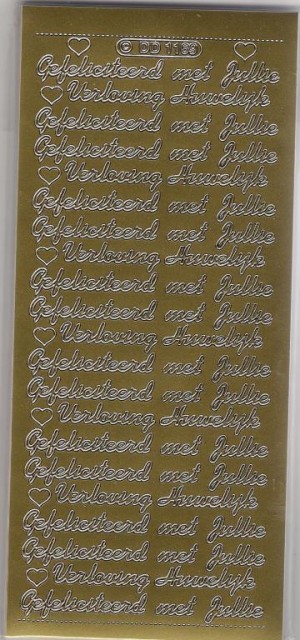 © DD 1183
Gefeliciteerd met Jullie
Verloving Huwelijk
Gefeliciteerd met Jullie
Gefeliciteerd met Jullie
Verloving Huwelijk
Gefeliciteerd met Jullie
Gefeliciteerd met Jullie
Verloving Huwelijk
Gefeliciteerd met Jullie
Gefeliciteerd met Jullie
Verloving Huwelijk
Gefeliciteerd met Jullie
Gefeliciteerd met Jullie
Verloving Huwelijk
Gefeliciteerd met Jullie
Gefeliciteerd met Jullie
Verloving Huwelijk
Gefeliciteerd met Jullie
Gefeliciteerd met Jullie
Verloving Huwelijk
Gefeliciteerd met Jullie